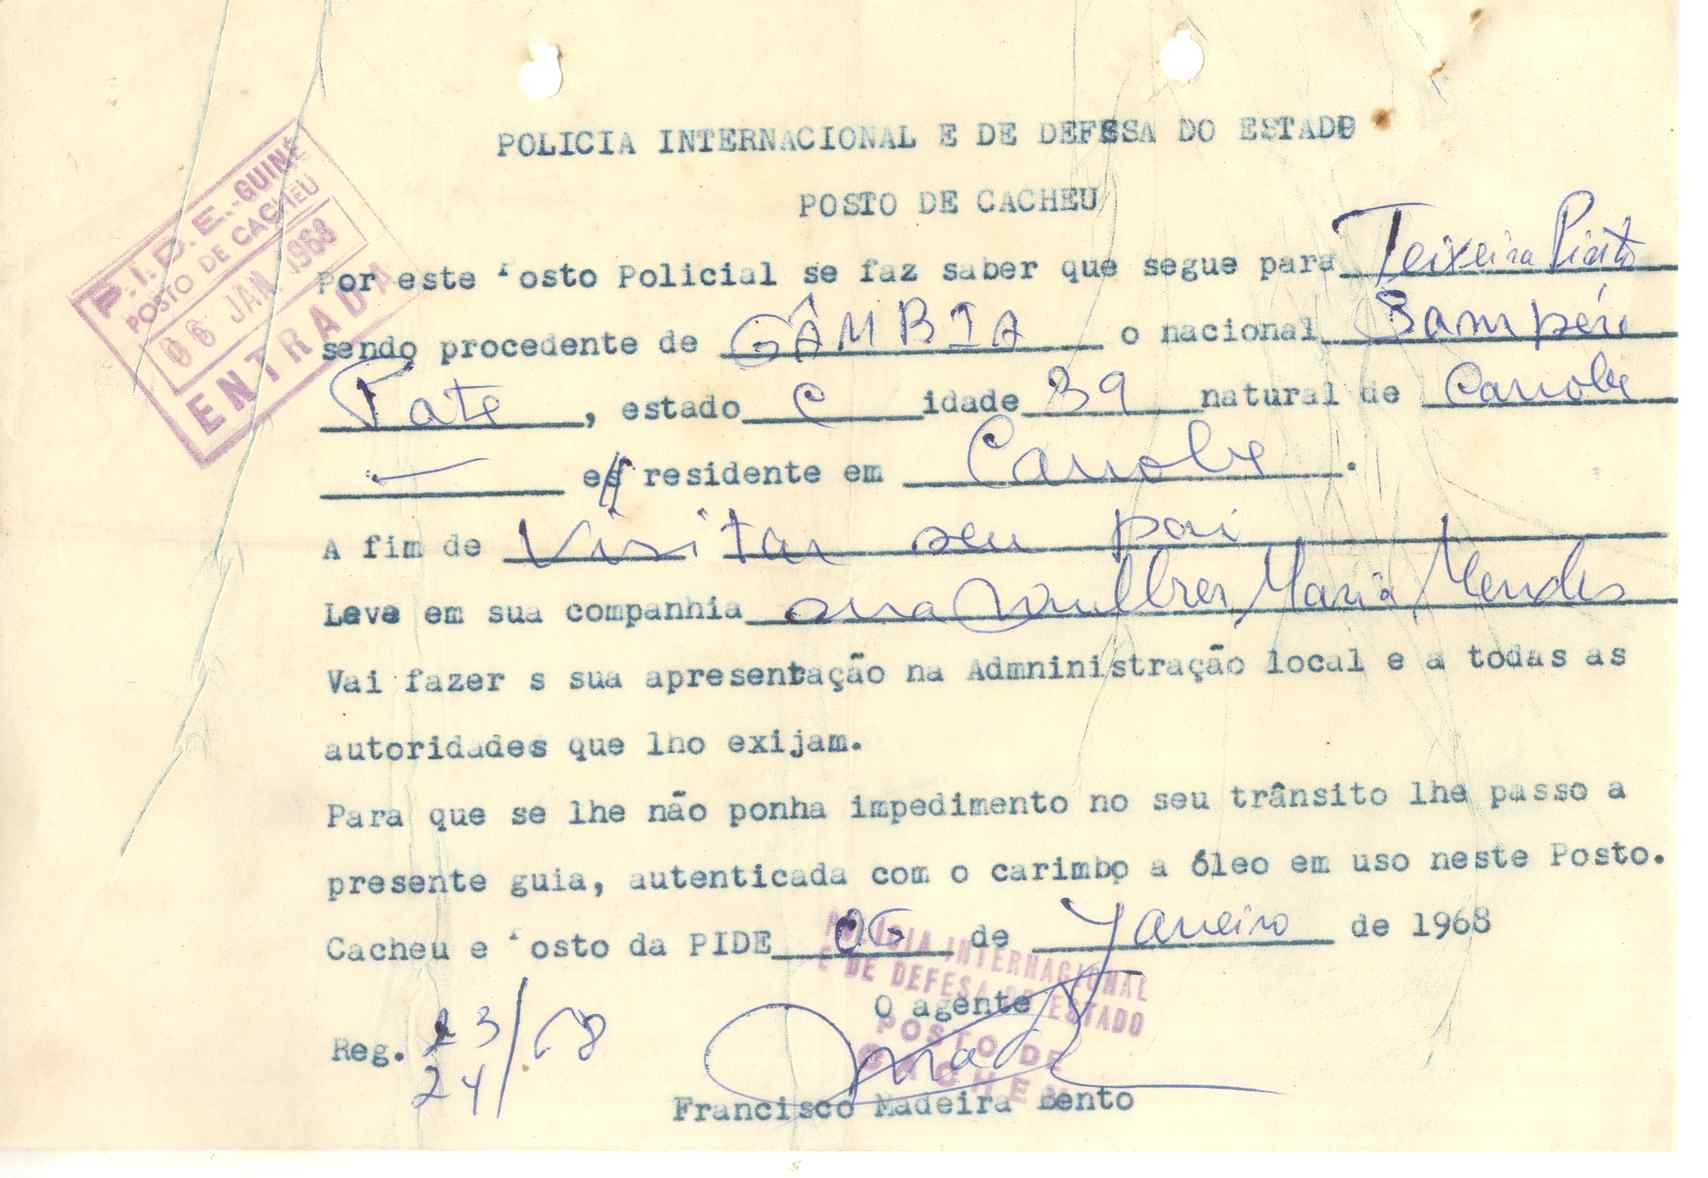 POLICIA INTERNACIONAL E DE DEFESA DO ESTADO
POSTO DE CACHEU
P.I.D.E.-GUINÉ
POSTO DE CACHEU
06 JAN. 1968
ENTRADA
Por este Posto Policial se faz saber que segue para Teixeira Pinto
sendo procedente de GÂMBIA o nacional
Pate, estado C idade 39 natural de Canobe
— e residente em Canobe.
A fim de Visitar seu pai
Leva em sua companhia sua mulher Maria Mendes
Vai fazer s sua apresentação na Admninistração local e a todas as
autoridades que lho exijam.
Para que se lhe não ponha impedimento no seu trânsito lhe passo a
presente guia, autenticada com o carimbo a óleo em uso neste Posto.
Cacheu e Posto da PIDE 06 de Janeiro de 1968
POLICIA INTERNACIONAL
E DE DEFESA DO ESTADO
POSTO DE
CACHEU
O agente
Reg. 23/68
24
Francisco Madeira Bento